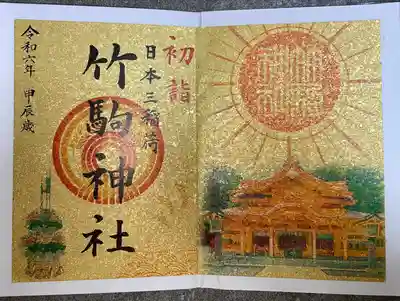 初詣
日本三稲荷
竹駒神社
令和六年 甲辰歳